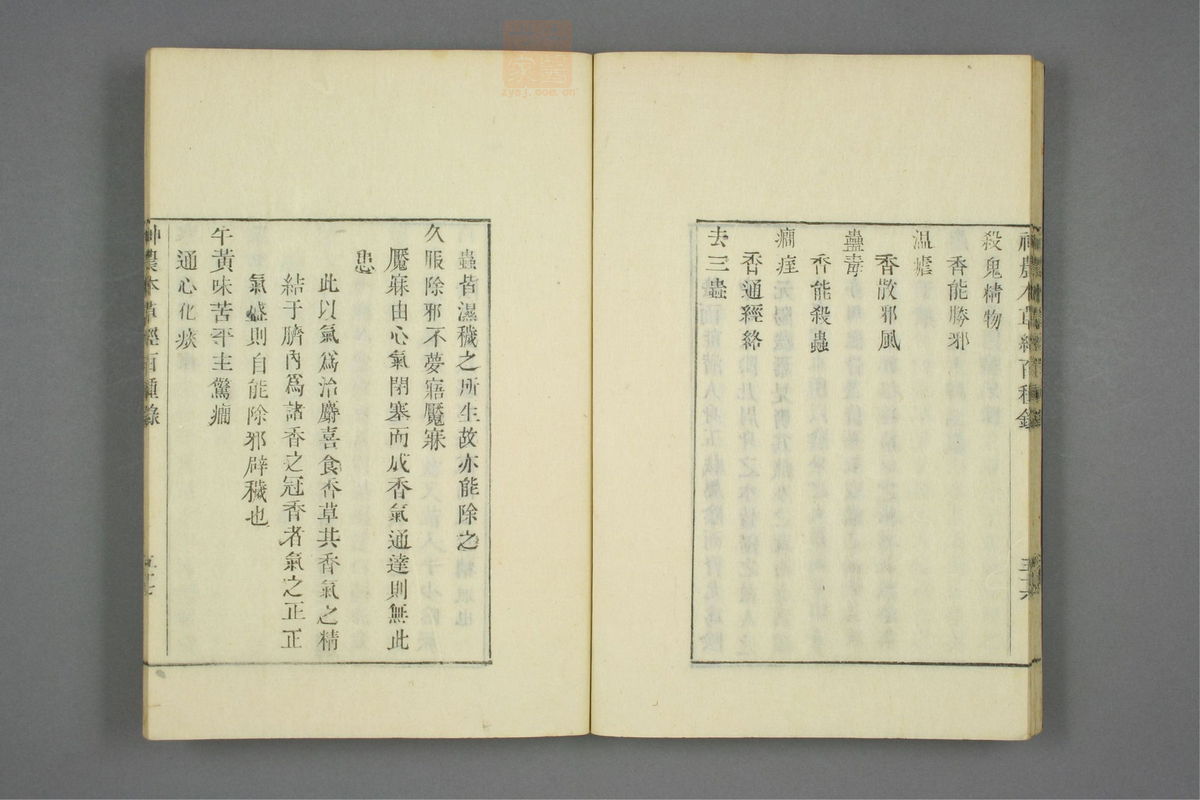 神農本草經百種錄
五十六
殺鬼精物
香能勝邪
温瘧
香散邪風
蠱毒
香能殺蟲
癇痓
香通經絡
去三蟲
蟲皆濕穢之所生故亦能除之
久服除邪不夢寤魘寐
魘寐由心氣閉塞而成香氣通達則無此
患
此以氣爲治麝喜食香草其香氣之精
結于臍內爲諸香之冠香者氣之正正
氣盛則自能除邪辟穢也
牛黃味苦平主驚癇
通心化痰
神農本草經百種錄
五十七
zysj.com.cn